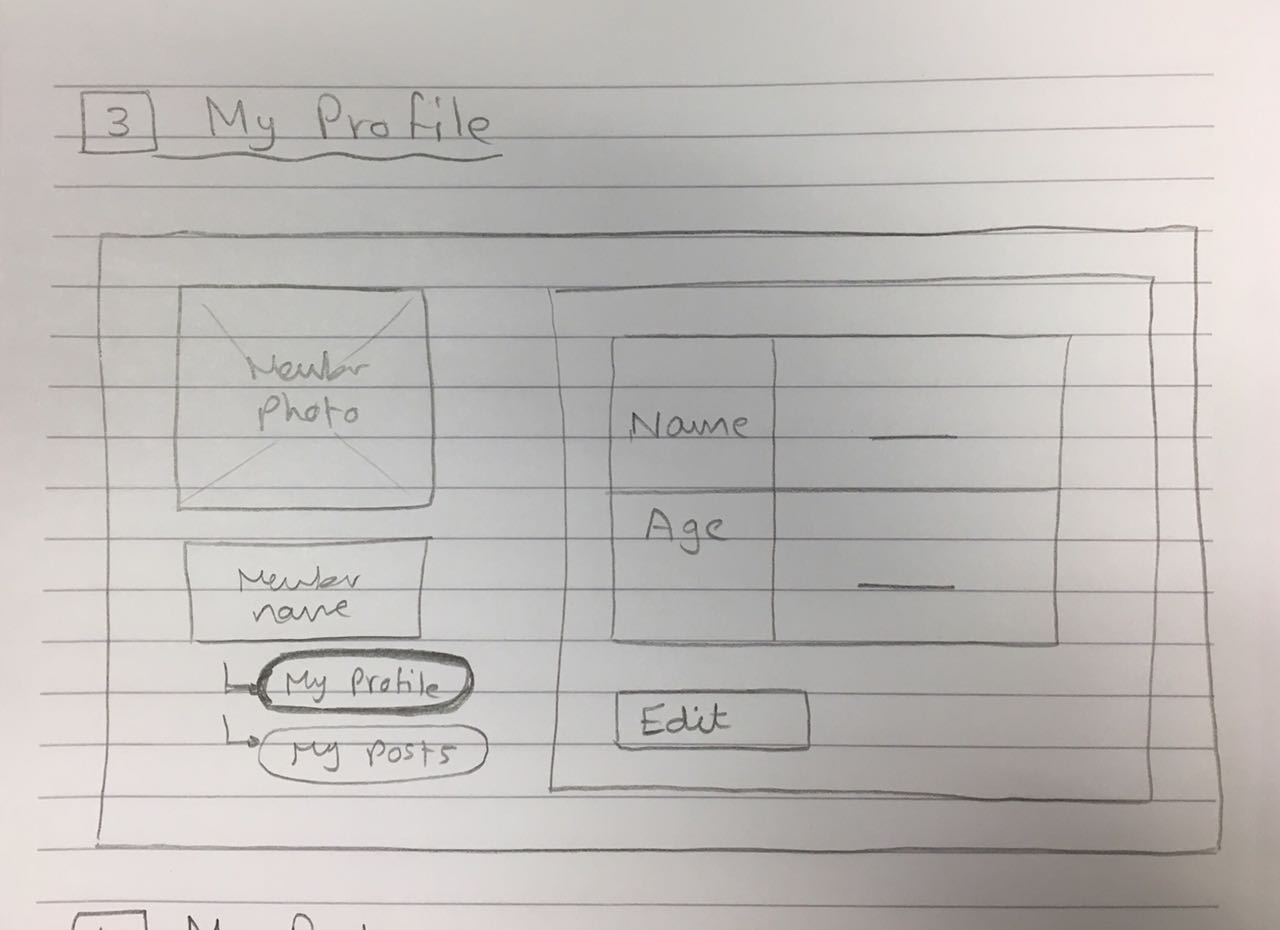 3 My Profile
Member
photo
Member
name
My Profile
My posts
Name
Age
Edit